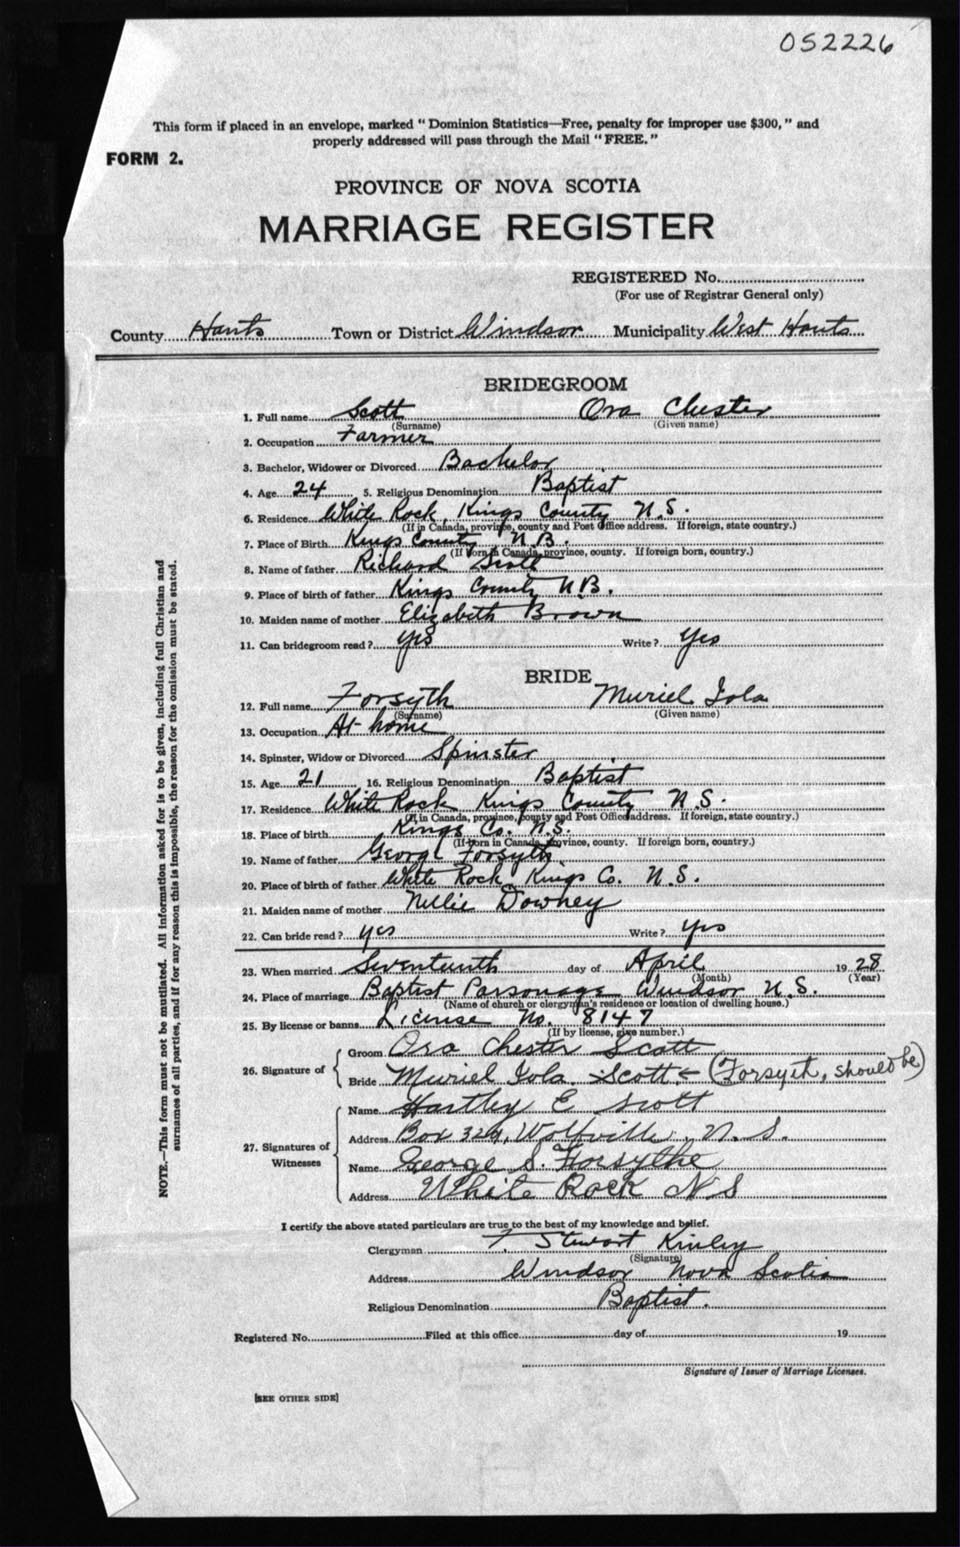 052226
This form if placed in an envelope, marked "Dominion Statistics—Free, penalty for improper use $300," and
properly addressed will pass through the Mail "FREE."
FORM 2.
PROVINCE OF NOVA SCOTIA
MARRIAGE REGISTER
REGISTERED No.
(For use of Registrar General only)
County Hants Town or District Windsor Municipality West Hants
BRIDEGROOM
1. Full name Scott Ora Chester
(Surname) (Given name)
2. Occupation Farmer
3. Bachelor, Widower or Divorced Bachelor
4. Age 24 5. Religious Denomination Baptist
6. Residence White Rock, Kings County N.S.
(If in Canada, province, county and Post Office address. If foreign, state country.)
7. Place of Birth Kings County N.B.
(If born in Canada, province, county. If foreign born, country.)
8. Name of father Richard Scott
9. Place of birth of father Kings County N.B.
10. Maiden name of mother Elizabeth Brown
11. Can bridegroom read? yes Write? Yes
BRIDE
12. Full name Forsyth Muriel Iola
(Surname) (Given name)
13. Occupation At home
14. Spinster, Widow or Divorced Spinster
15. Age 21 16. Religious Denomination Baptist
17. Residence White Rock Kings County N.S.
(If in Canada, province, county and Post Office address. If foreign, state country.)
18. Place of birth Kings Co. N.S.
(If born in Canada, province, county. If foreign born, country.)
19. Name of father George Forsyth
20. Place of birth of father White Rock Kings Co. N.S.
21. Maiden name of mother Nellie Downey
22. Can bride read? yes Write? yes
23. When married Seventeenth day of April 1928
(Month) (Year)
24. Place of marriage Baptist Parsonage Windsor N.S.
(Name of church or clergyman's residence or location of dwelling house.)
25. By license or banns License No. 8147
(If by license, give number.)
26. Signature of
Groom Ora Chester Scott
Bride Muriel Iola Scott (Forsyth, should be)
27. Signatures of Witnesses
Name Hartley E Scott
Address Box 324, Wolfville, N.S.
Name George S. Forsythe
Address White Rock N S
I certify the above stated particulars are true to the best of my knowledge and belief.
Clergyman F. Stewart Kinley
(Signature)
Address Windsor Nova Scotia
Religious Denomination Baptist.
Registered No. Filed at this office day of 19
Signature of Issuer of Marriage Licenses.
[SEE OTHER SIDE]
NOTE.—This form must not be mutilated. All information asked for is to be given, including full Christian and
surnames of all parties, and if for any reason this is impossible, the reason for the omission must be stated.